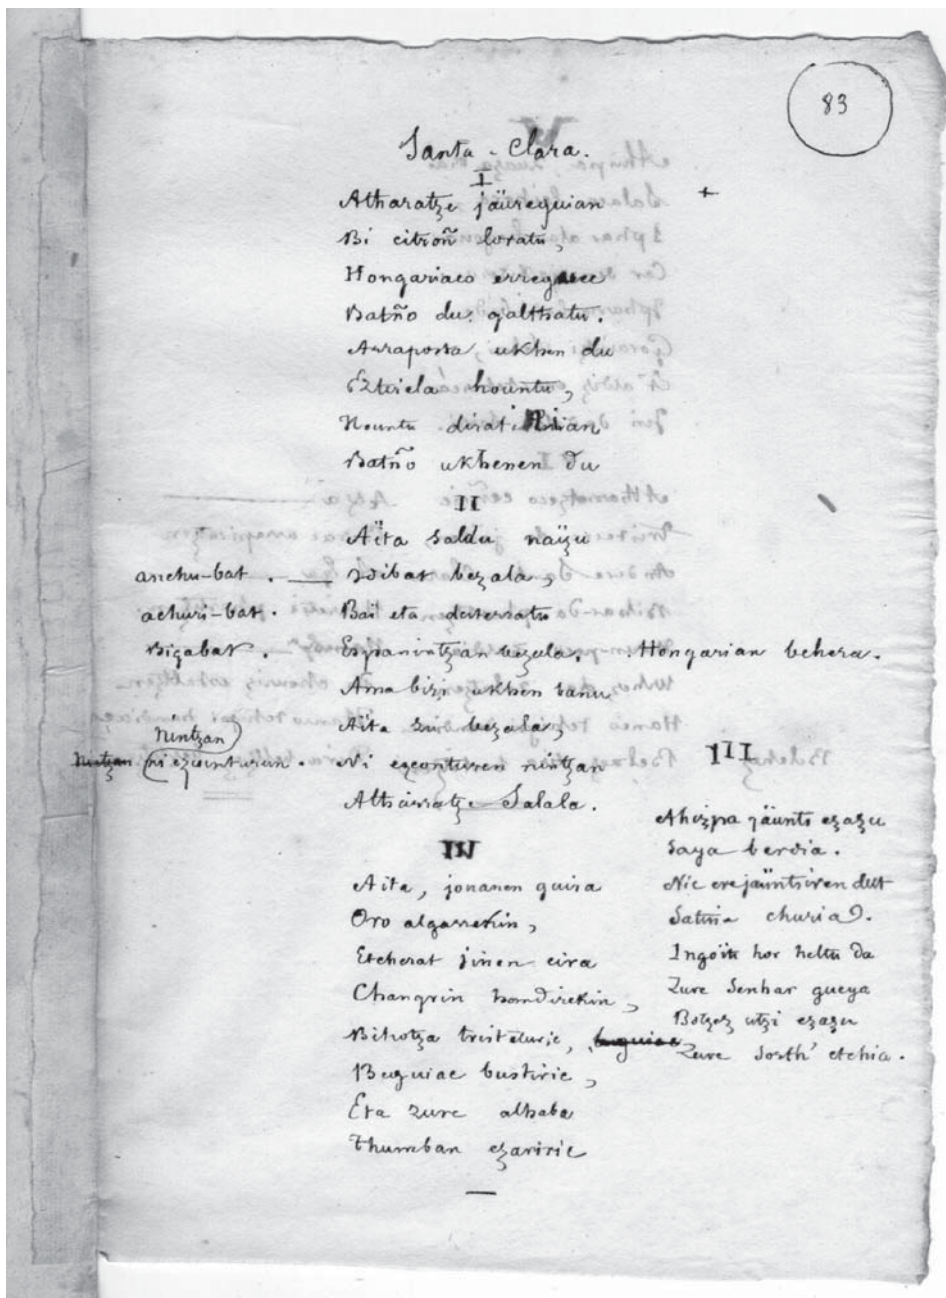 83
Santa-Clara.
I
Atharatze jäureguian
Bi citroñ loratu,
Hongariaco erreguec
Batño du galthatu.
Arraposta ukhen du
Eztiela hountu,
Hountu diratinian
Batño ukhenen du
II
Aïta saldu naïzu
anchu-bat. — Idibat bezala,
achuri-bat. Bai eta desterratu
Bigabat. Espaniritzan bezala. Hongarian behera.
Ama bizi ukhen banu
Aïta zu bezala,
nintzan
nintzan ni ezconturen. Ni ezconturen nintzan
Atharratze Salala.
III
Ahizpa jäunts ezazu
Saya berdia.
Nic ere jäuntsiren dut
Satina churia.
Ingoïti hor heltu da
Zure Senhar gueya
Botzez utzi ezazu
Zure Sorth' etchia.
IV
Aita, jonanen guira
Oro algarrekin,
Etcherat jinen cira
Changrin handirekin,
Bihotza tristeturic, beguiac
Beguiac bustiric,
Eta zure alhaba
Thumban ezariric